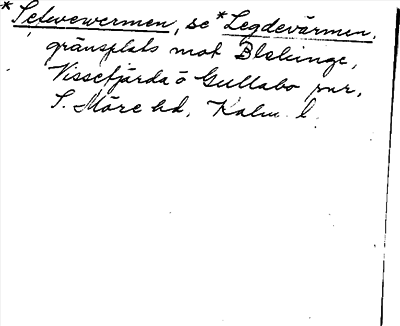 *Selwewermen, se *Legdevärmen,
gränsplats mot Blekinge,
Vissefjärda o Gullabo snr,
S. Möre hd, Kalm. l.